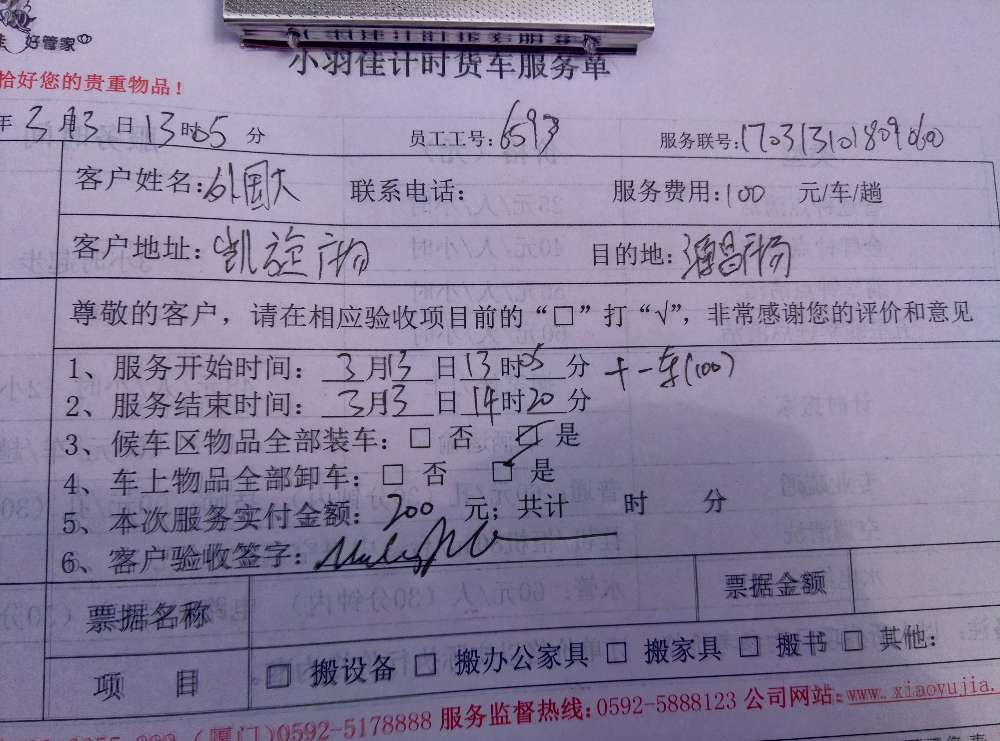 好管家
小羽佳计时货车服务单
拾好您的贵重物品！
年 3 月 13 日 13 时 05 分 员工工号：6593 服务联号：
客户姓名：外国人 联系电话： 服务费用：100 元/车/趟
客户地址：凯旋广场 目的地：
尊敬的客户，请在相应验收项目前的“□”打“√”，非常感谢您的评价和意见
1、服务开始时间：3 月 13 日 13 时 05 分 十一车(100)
2、服务结束时间：3 月 3 日 14 时 20 分
3、候车区物品全部装车：□ 否 □ 是
4、车上物品全部卸车：□ 否 □ 是
5、本次服务实付金额：200 元；共计 时 分
6、客户验收签字：
票据名称 票据金额
项 目 □ 搬设备 □ 搬办公家具 □ 搬家具 □ 搬书 □ 其他：
(厦门)0592-5178888 服务监督热线：0592-5888123 公司网站：www.xiaoyujia.